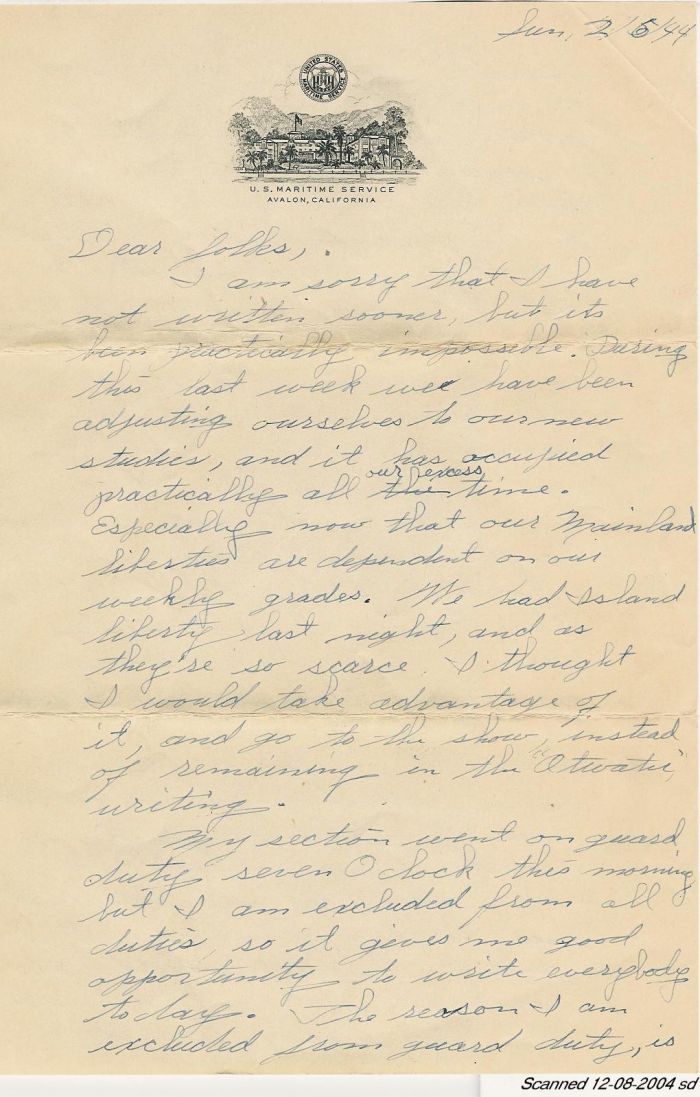 Sun, 2/6/44
UNITED STATES MARITIME SERVICE
U.S. MARITIME SERVICE
AVALON, CALIFORNIA
Dear folks,
I am sorry that I have
not written sooner, but its
been practically impossible. During
this last week we have been
adjusting ourselves to our new
studies, and it has occupied
practically all the our excess time.
Especially now that our Mainland
liberties are dependent on our
weekly grades. We had Island
liberty last night, and as
they're so scarce I thought
I would take advantage of
it, and go to the show, instead
of remaining in the "Atwater",
writing.
My section went on guard
duty seven O clock this morning
but I am excluded from all
duties, so it gives me good
opportunity to write everybody
today. The reason I am
excluded from guard duty, is
Scanned 12-08-2004 sd